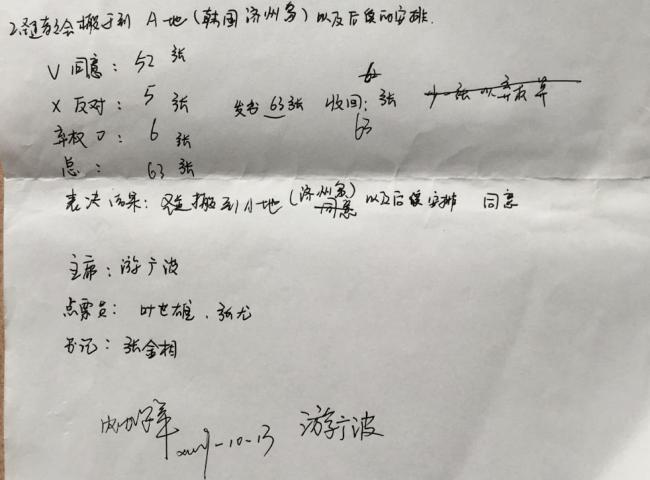 2.整教会搬迁到 A地(韩国济州岛)以及后续的安排.
V 同意: 52 张
X 反对: 5 张 发出 63张 收回: 62 63 张
弃权 O: 6 张
总: 63 张
表决结果: 搬到A地(济州岛)同意 以及后续安排 同意
主席: 游广波
点票员: 叶世雄. 张尤
书记: 张金相
2019-10-13 游广波